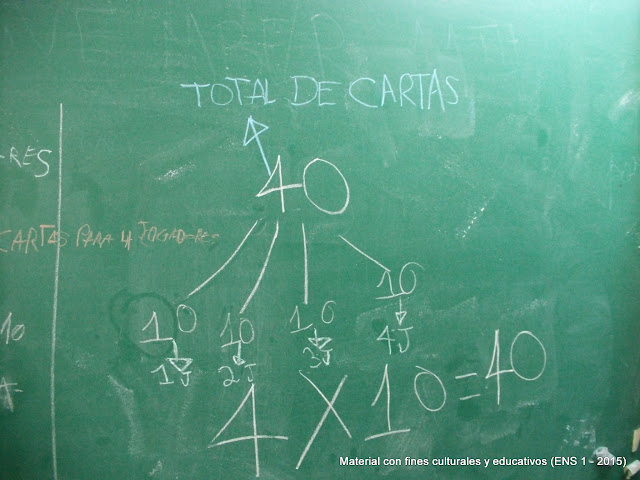 TOTAL DE CARTAS
40
-RES
CARTAS PARA 4 JOGADORES
10 10 10 10
1J 2J 3J 4J
10
4 X 10 = 40
Material con fines culturales y educativos (ENS 1 - 2015)